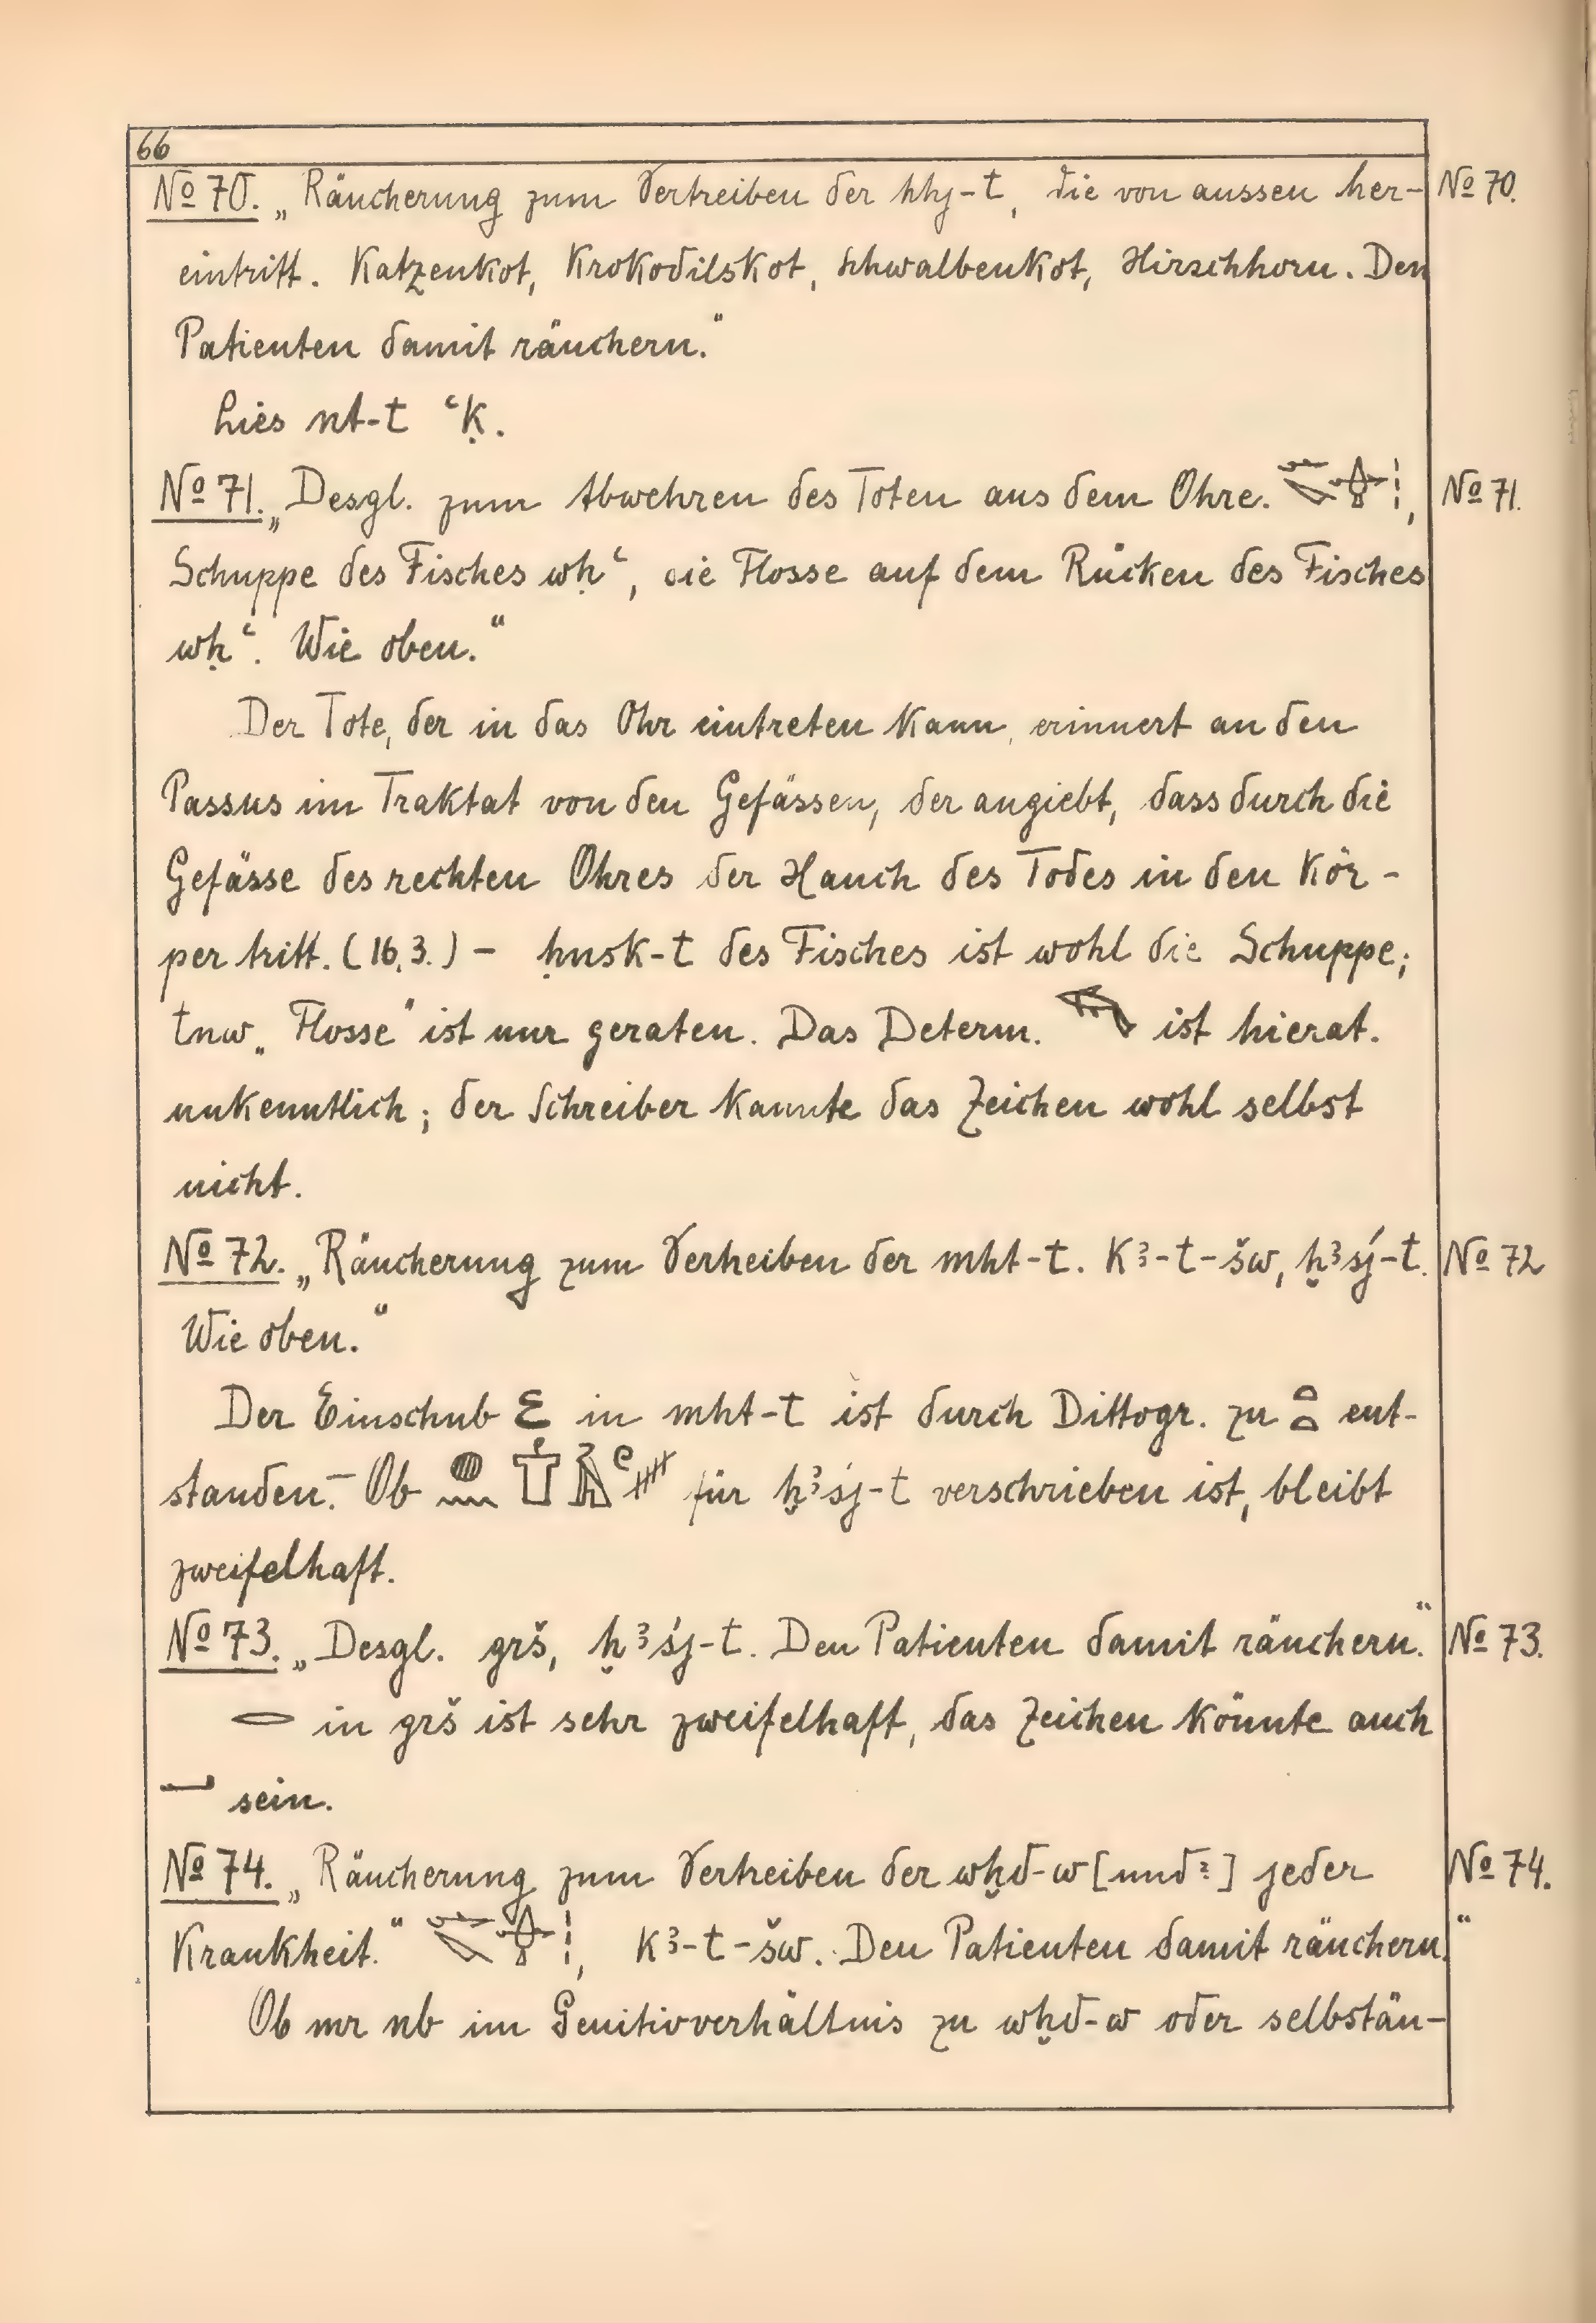 66
No 70. „Räucherung zum Vertreiben der hhj-t, die von aussen her- No 70.
eintritt. Katzenkot, Krokodilskot, Schwalbenkot, Hirschhorn. Den
Patienten damit räuchern."
Lies nt-t ꜥḳ.
No 71. „Desgl. zum Abwehren des Toten aus dem Ohre. , No 71.
Schuppe des Fisches wḥꜥ, die Flosse auf dem Rücken des Fisches
wḥꜥ. Wie oben."
Der Tote, der in das Ohr eintreten kann, erinnert an den
Passus im Traktat von den Gefässen, der angiebt, dass durch die
Gefässe des rechten Ohres der Hauch des Todes in den Kör-
per tritt. (16,3.) – ḥnsk-t des Fisches ist wohl die Schuppe;
tnw „Flosse" ist nur geraten. Das Determ. ist hierat.
unkenntlich; der Schreiber kannte das Zeichen wohl selbst
nicht.
No 72. „Räucherung zum Vertreiben der mht-t. Kꜣ-t-šw, ḫꜣśj-t. No 72
Wie oben."
Der Einschub in mht-t ist durch Dittogr. zu ent-
standen. – Ob für ḫꜣśj-t verschrieben ist, bleibt
zweifelhaft.
No 73. „Desgl. grš, ḫꜣśj-t. Den Patienten damit räuchern." No 73.
𓂋 in grš ist sehr zweifelhaft, das Zeichen könnte auch
𓂝 sein.
No 74. „Räucherung zum Vertreiben der wḫd-w [und?] jeder No 74.
Krankheit." , Kꜣ-t-šw. Den Patienten damit räuchern."
Ob mr nb im Genitivverhältnis zu wḫd-w oder selbstän-